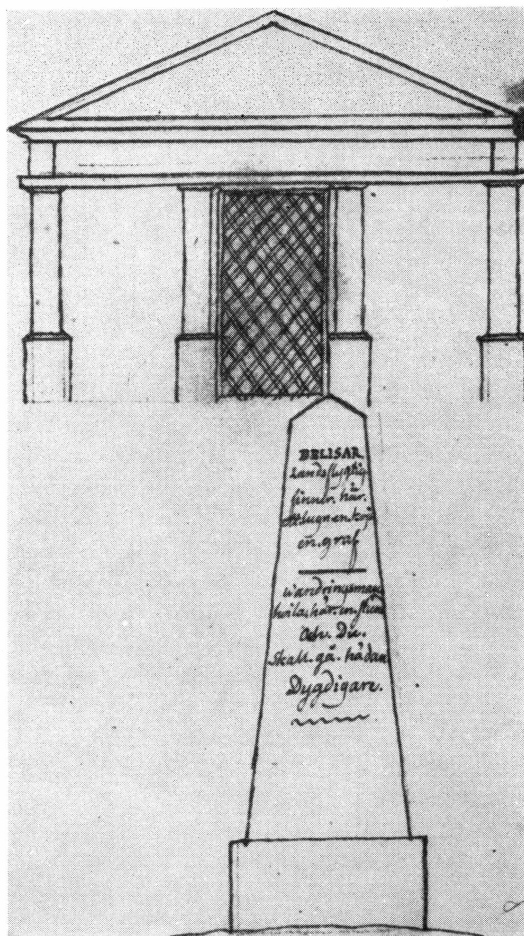 BELISAR
Landsflygtig
finner. här.
en. graf
wandringsman
hvila. här. en. stund
Och. Du.
Skall. gå. hädan
Dygdigare.